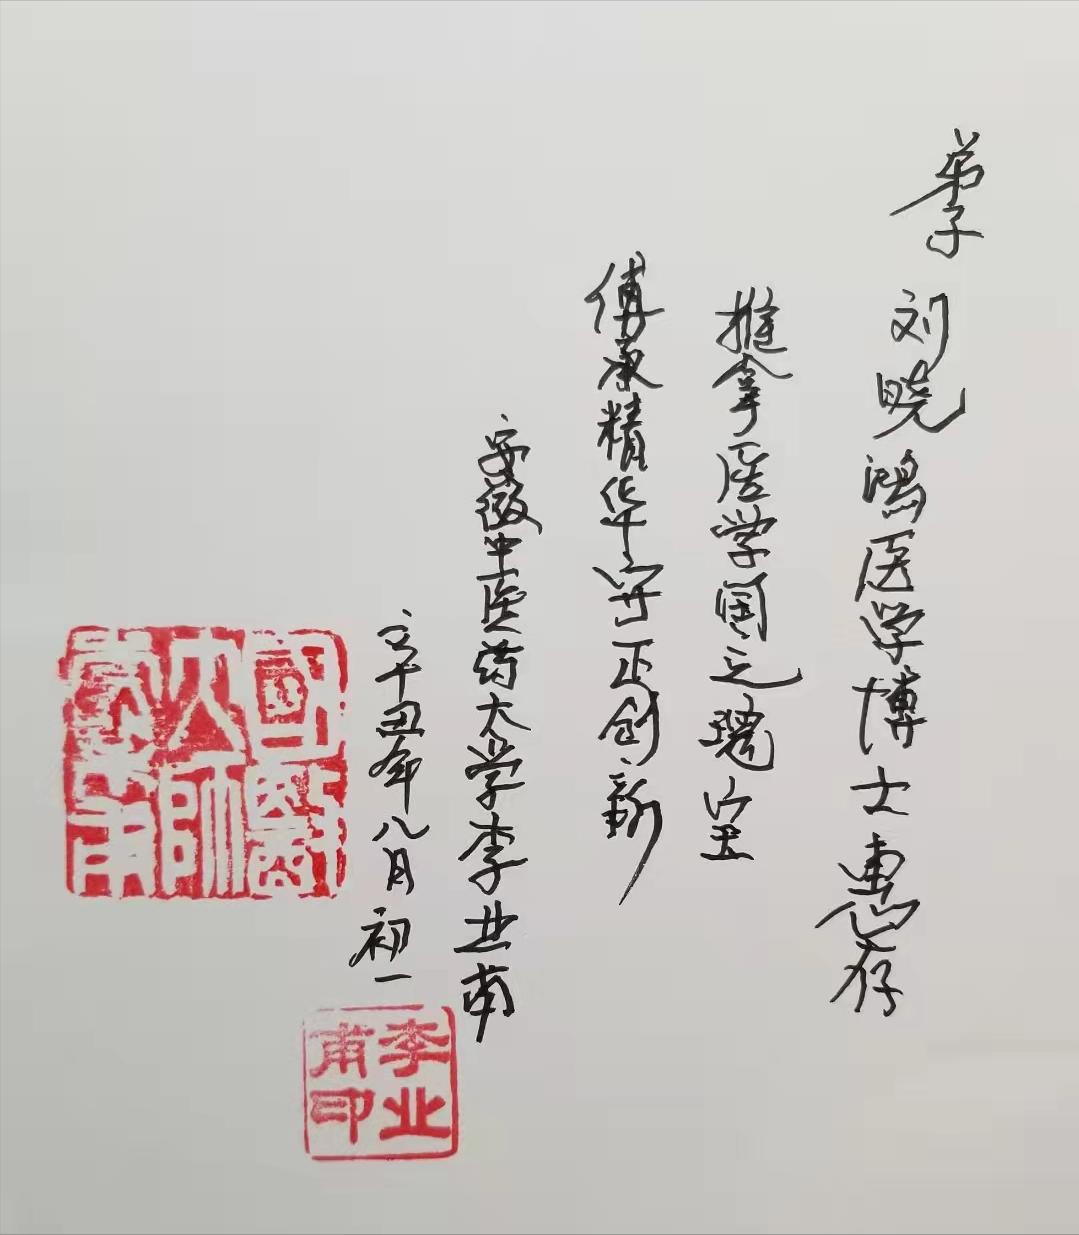 弟子 刘晓鸿医学博士惠存
推拿医学国之瑰宝
傳承精华守正创新
安徽中医药大学李业甫
辛丑年八月初一
國醫大師李業甫
李业甫印